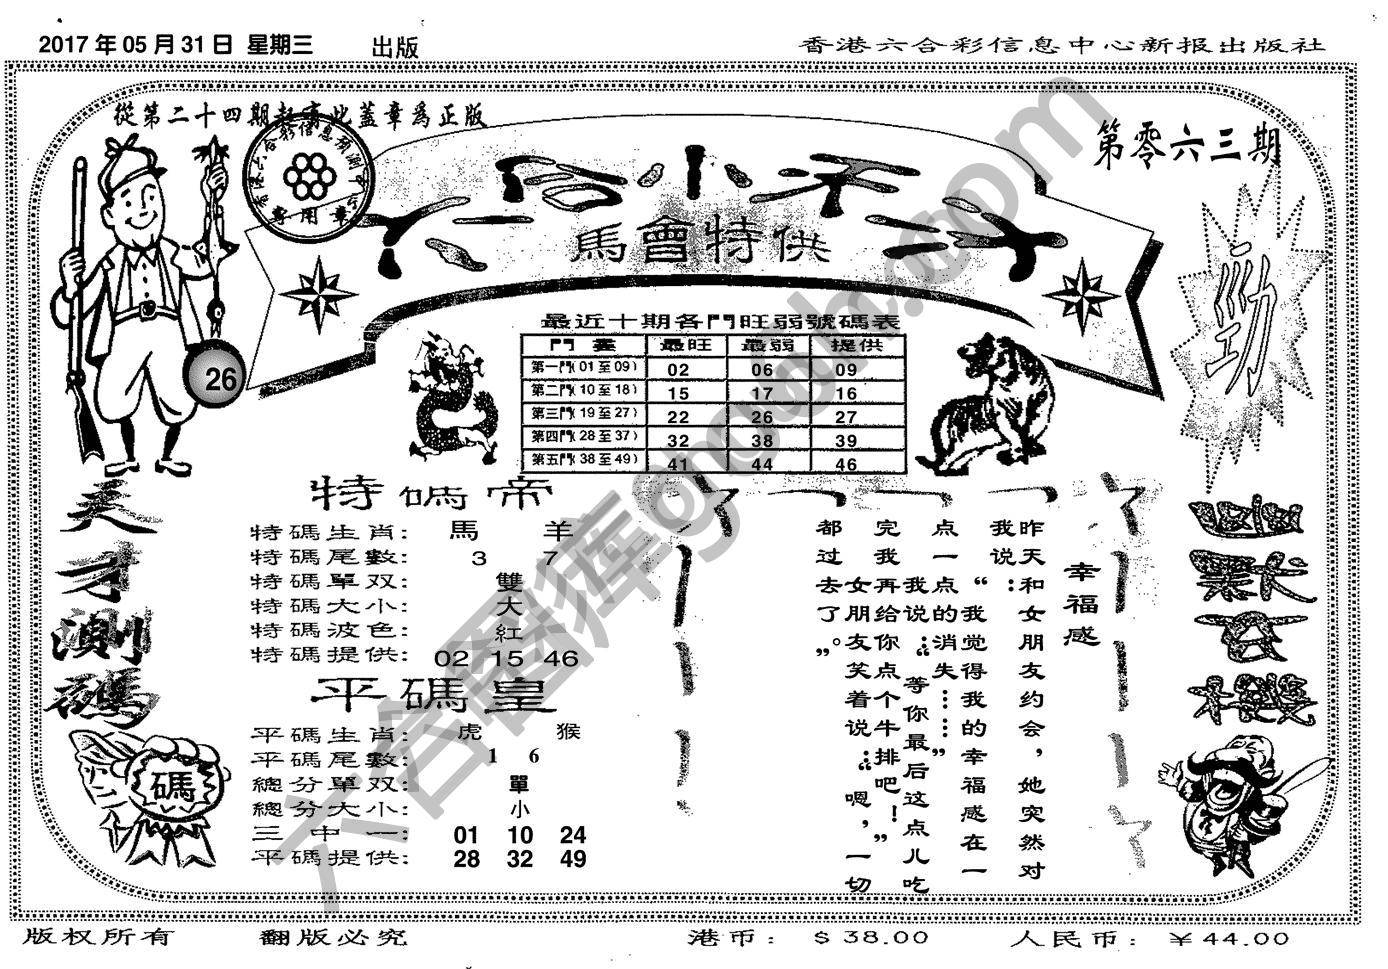 2017 年 05 月 31 日 星期三 出版
香港六合彩信息中心新报出版社
從第二十四期起寄此蓋章爲正版
第零六三期
六合小天才
馬會特供
勁
26
最近十期各門旺弱號碼表
最旺 最弱 提供
第一門( 01 至 09 ) 02 06 09
第二門( 10 至 18 ) 15 17 16
第三門( 19 至 27 ) 22 26 27
第四門( 28 至 37 ) 32 38 39
第五門( 38 至 49 ) 41 44 46
天才測碼
碼
特碼帝
特碼生肖： 馬 羊
特碼尾數： 3 7
特碼單双： 雙
特碼大小： 大
特碼波色： 紅
特碼提供： 02 15 46
平碼皇
平碼生肖： 虎 猴
平碼尾數： 1 6
總分單双： 單
總分大小： 小
三中一： 01 10 24
平碼提供： 28 32 49
幸福感
昨天和女朋友约会，她突然对
我说：“我觉得我的幸福感在一
点一点的消失……”
我说：“等你最后这点儿吃
完我再给你点个牛排吧！”
女朋友笑着说：“嗯，一切
都过去了。”
版权所有 翻版必究 港币： $ 38.00 人民币： ￥44.00
六合图库